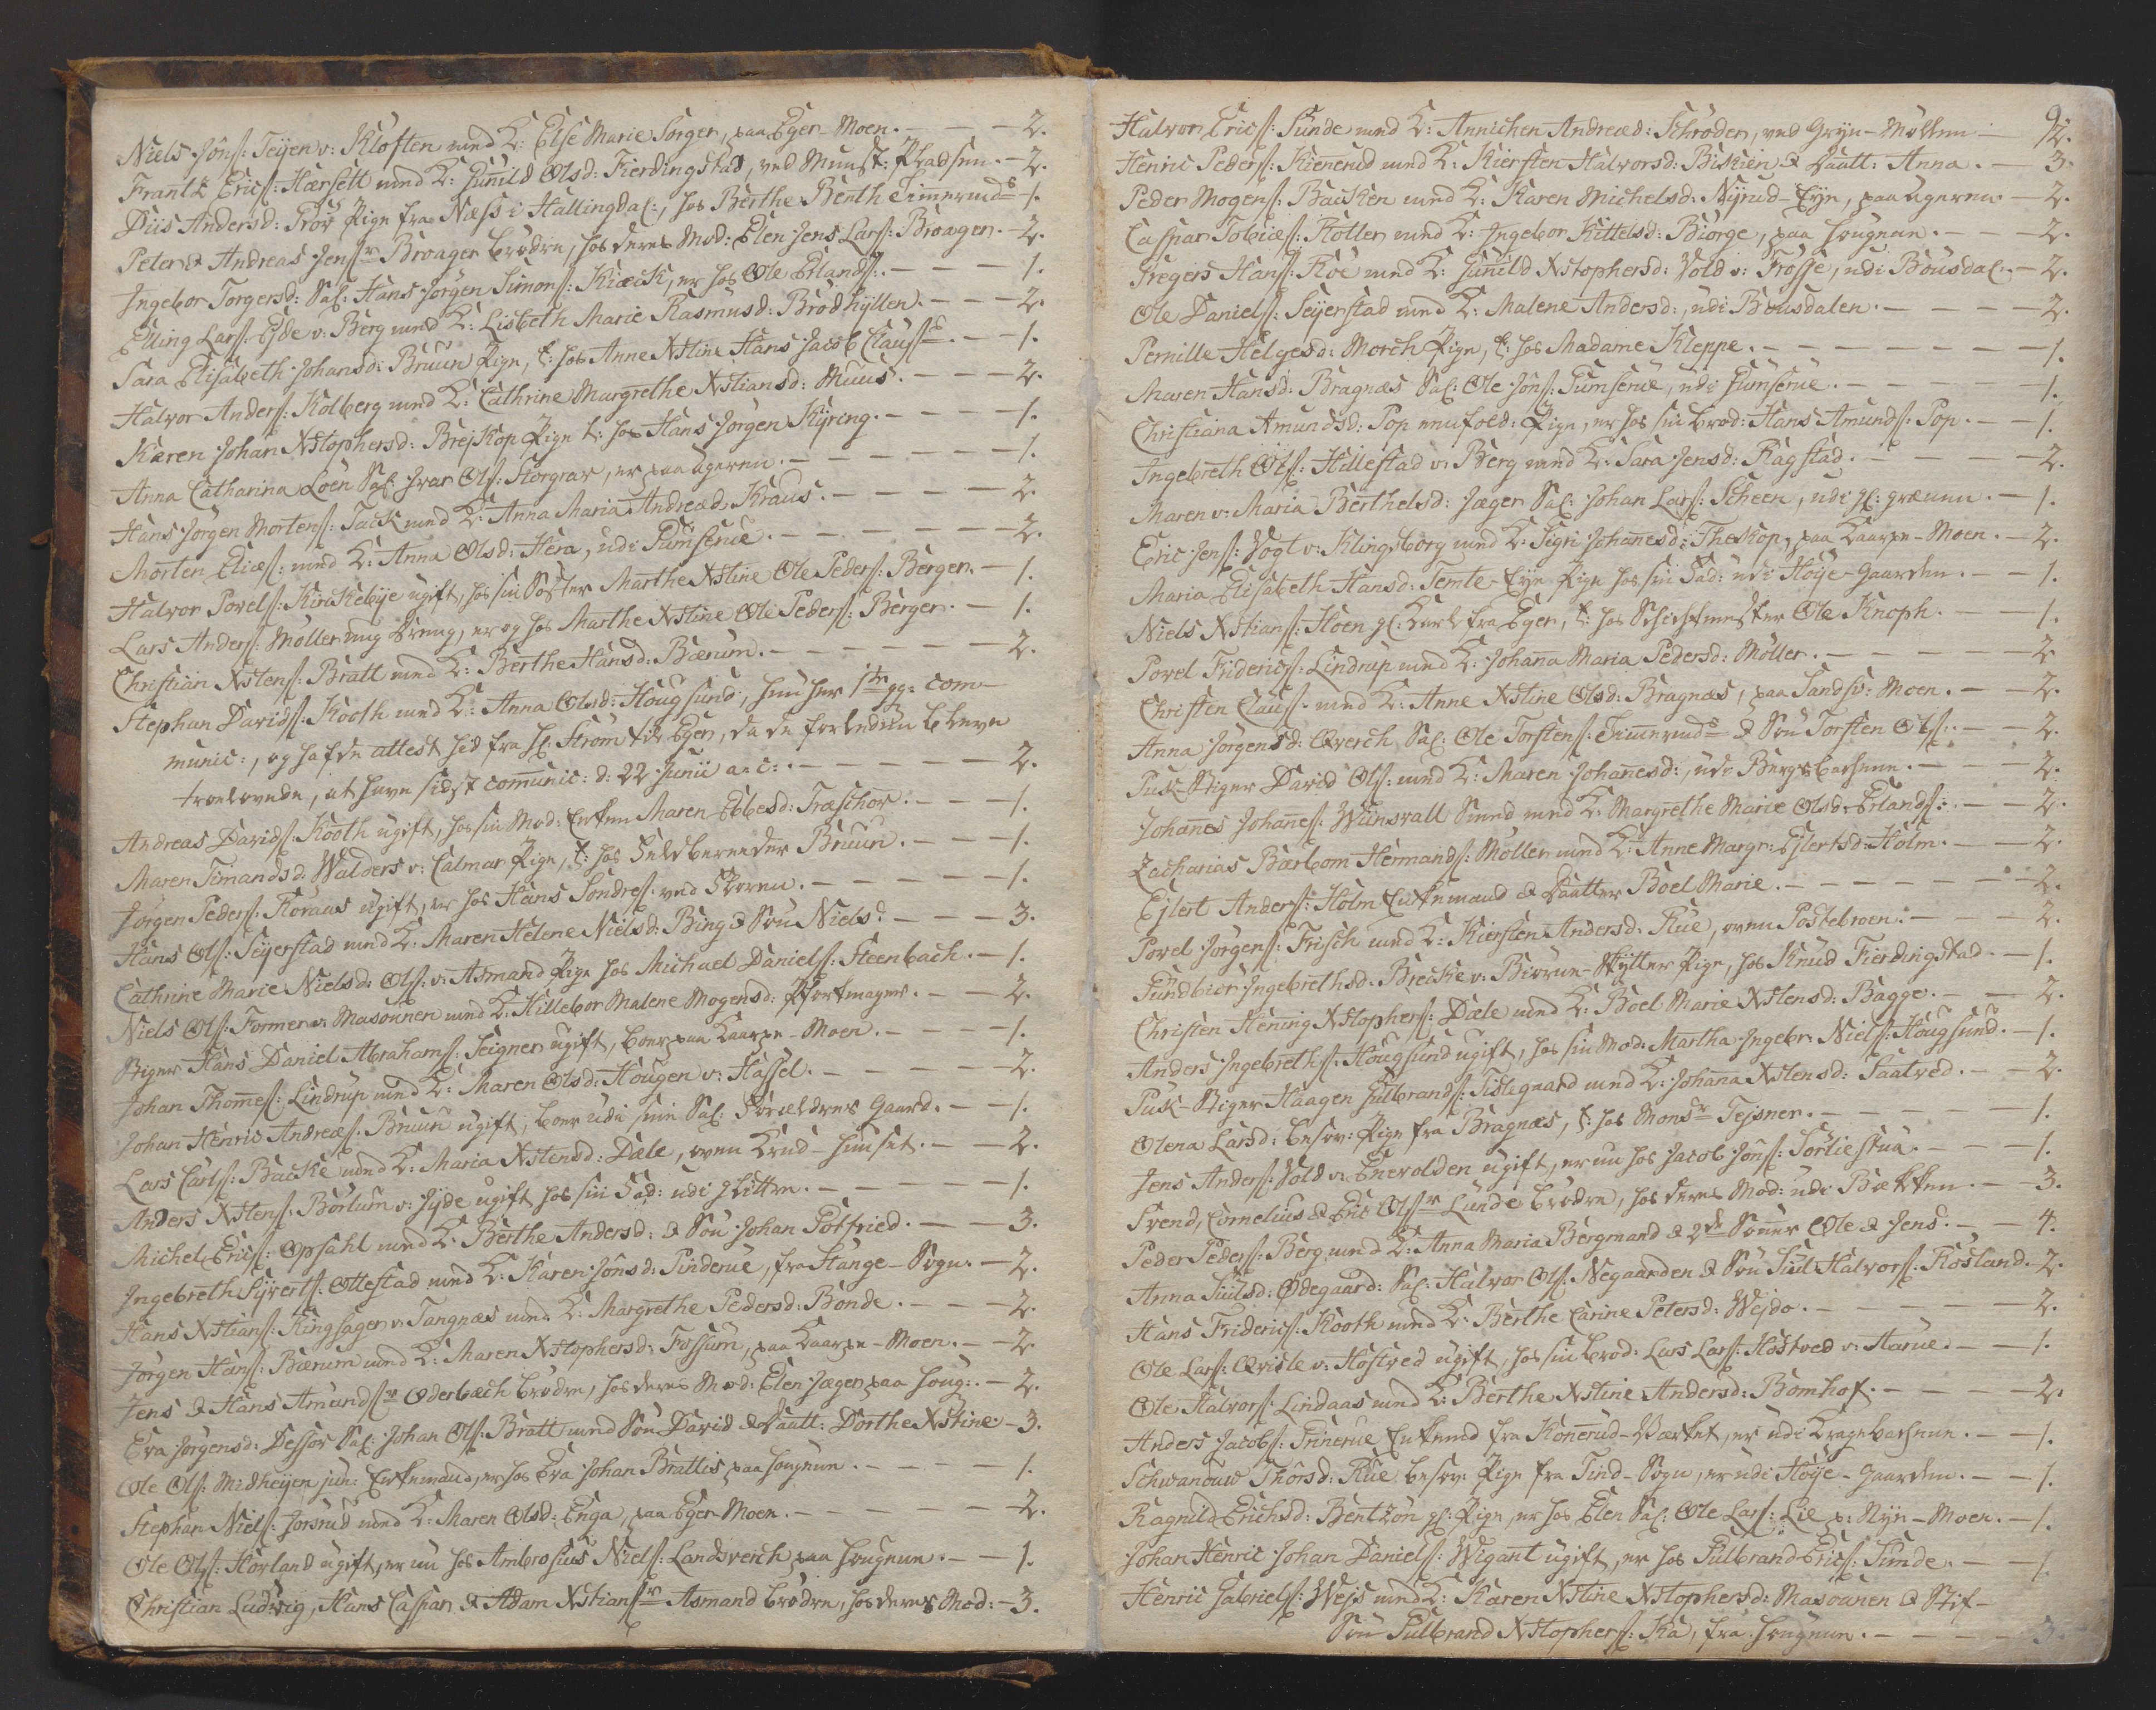 Niels Jöns: Teijen v: Klöften med K: Else Marie Sorger, paa Eger-Moen. — 2.
Frantz Erics: Hærsett med K: Gunild Olsd: Fierdingstad, ved Munst: Pladsen. — 2.
Diis Andersd: Pige fra Næss i Hallingdal:, hos Berthe Benth Timermds — 1.
Peter & Andreas Jenssr Broager brödre, hos deres Mod: Elen Jens Lars: Broager. — 2.
Ingebor Torgersd: Sal: Hans Jörgen Simons: Kiæck, er hos Ole Erlands: — 1.
Elling Lars: Eide v: Berg med K: Lisbeth Marie Rasmusd: Brödhyllen. — 2.
Sara Elisabeth Johansd: Bruun Pige, t: hos Anne Xstine Hans Jacob Clauss: — 1.
Halvor Anders: Kolberg med K: Cathrine Margrethe Xstiansd: Muus. — 2.
Karen Johan Xstophersd: Brejskop Pige t: hos Hans Jörgen Kyring. — 1.
Anna Catharina Loen Sal: Ivar Ols: Storgrav, er paa Ageren. — 1.
Hans Jörgen Mortens: Tack med K: Anna Maria Andreæd: Kraus. — 2.
Morten Elies: med K: Anna Olsd: Hera, udi Gumserue. — 2.
Halvor Povels: Kirckebÿe ugift, hos sin Söster Marthe Xstine Ole Peders: Bergen. — 1.
Lars Anders: Möller ung Dreng, er og hos Marthe Xstine Ole Peders: Bergen. — 1.
Christian Xstens: Bratt med K: Berthe Hansd: Bærum. — 2.
Stephan Davids: Kooth med K: Anna Olsd: Hougsund, hun her 1ste gg: com-
munic:, og hafde attest hid fra H: Ström til Eger, da de forleden bleve
troelovede, at have sidst communic: d: 22 Junii a: c: — 2.
Andreas Davids: Kooth ugift, hos sin Mod: Enken Maren Ebbesd: Træschow. — 1.
Maren Timandsd: Walders v: Calmar Pige, t: hos Bruun. — 1.
Jörgen Peders: Koraas ugift, er hos Hans Sondres: ved Skoven. — 1.
Hans Ols: Seÿerstad med K: Maren Helene Nielsd: Bing & Sön Niels. — 3.
Cathrine Marie Nielsd: Ols: v: Asmand Pige hos Michael Daniels: Steenbach. — 1.
Niels Ols: Former v: Masovnen med K: Hillebor Malene Mogensd: — 2.
Stiger Hans Daniel Abrahams: Seigner ugift, boer paa Kaarpe-Moen. — 1.
Johan Thomes: Lindrup med K: Maren Olsd: Hougen v: Hassel. — 2.
Johan Henric Andreæs: Bruun ugift, boer udi sine Sal: Forældres Gaard. — 1.
Lars Carls: Backe med K: Maria Xstensd: Dæle, oven Krud-Huuset. — 2.
Anders Xstens: Börlum v: Jÿde ugift hos sin Fad: udi Hÿtten. — 1.
Michel Erics: Opsahl med K: Berthe Andersd: & Sön Johan Gotfried. — 3.
Ingebreth Sÿverts: Ottestad med K: Karen Jonsd: Pinderue, fra Stange-Sogn. — 2.
Hans Xstians: Ringsager v: Tangnæs med K: Margrethe Pedersd: Bonde. — 2.
Jörgen Hans: Bærum med K: Maren Xstophersd: Fossum, paa Kaarpe-Moen. — 2
Jens & Hans Amundssr Oderbæch brödre, hos deres Mod: Elen Jæger paa Houg: — 2.
Eva Jörgensd: Dessör Sal: Johan Ols: Bratt med Sön David & Daatt: Dorthe Xstine. — 3.
Ole Ols: Midheÿen jun: Enkemand, er hos Eva Johan Brattis paa Hougene. — 1.
Stephan Niels: Jorsrud med K: Maren Olsd: Enga, paa Eger-Moen. — 2.
Ole Ols: Horland ugift, er nu hos Ambrosius Niels: Landsverch paa Hougene. — 1.
Christian Ludvig, Hans Caspar & Adam Xstianssr Asmand brödre, hos deres Mod: — 3.
9
Halvor Erics: Sunde med K: Annichen Andreæd: Schröder, ved Grÿn-Möllen — 2.
Henric Peders: Kienerud med K: Kiersten Halvorsd: Biskien & Daatt: Anna. — 3.
Peder Mogens: Backen med K: Karen Michelsd: Nÿrud-Eÿe, paa Ageren. — 2.
Caspar Tobiæs: Köller med K: Ingebor Kittelsd: Biörge, paa Hougene. — 2.
Gregers Hans: Koe med K: Gunild Xstophersd: Vold v: Frosse, udi Bousdal: — 2.
Ole Daniels: Seÿerstad med K: Malene Andersd:, udi Bousdalen. — 2.
Pernille Helgesd: Morch Pige, t: hos Madame Kleppe. — 1.
Maren Hansd: Bragnæs Sal: Ole Jöns: Gumserue, udi Gumserue. — 1.
Christiana Amundsd: Pop Pige, er hos sin brod: Hans Amunds: Pop. — 1.
Ingebreth Ols: Hillestad v: Berg med K: Sara Jensd: Ragstad. — 2.
Maren v: Maria Berthelsd: Jæger Sal: Johan Lars: Scheen, udi gl: — 1.
Eric Jens: Vogt v: Klingsborg med K: Segri Johanesd: Theskop, paa Kaarpe-Moen. — 2.
Maria Elisabeth Hansd: Temte-Eÿe Pige hos sin Fad: udi Höÿe-Gaarden. — 1.
Niels Xstians: Hoen gl: Karl fra Eger, t: hos Schichtmester Ole Knoph. — 1.
Povel Frideric: Lindrup med K: Johana Maria Pedersd: Möller. — 2
Christen Claus: med K: Anne Xstine Olsd: Bragnæs, paa Sandsv: Moen. — 2.
Anna Jörgensd: Qverch Sal: Ole Torstens: Timermds & Sön Torsten Ols: — 2.
Puk-Stiger David Ols: med K: Maren Johanesd:, udi Bergsbachene. — 2.
Johanes Johanes: Wünsvall Smed med K: Margrethe Marie Olsd: Erlands: — 2.
Zacharias Bærbom Hermands: Möller med K: Anne Margr: Ejlertsd: Holm. — 2.
Ejlert Anders: Holm Enkemand & Daatter Boel Marie. — 2.
Povel Jörgens: Frisch med K: Kiersten Andersd: Rue, oven Postebroen. — 2.
Gundbiör Ingebrethsd: Brecke v: Pige, hos Knud Fierdingstad. — 1.
Christen Hening Xstophers: Dæle med K: Boel Marie Xstensd: Bagge. — 2.
Anders Ingebreths: Hougsund ugift, hos sin Mod: Martha Ingebr: Niels: Hougsund. — 1.
Puk-Stiger Haagen Gulbrands: Tislegaard med K: Johana Xstensd: Saatved. — 2.
Olena Larsd: besov: Pige fra Bragnæs, t: hos Monsr Tejsner. — 1.
Jens Anders: Vold v: Enevolden ugift, er nu hos Jacob Jöns: Sorliestua. — 1.
Svend, Cornelius & Eric Olssr Lunde brödre, hos deres Mod: udi Bekken. — 3.
Peder Peders: Berg med K: Anna Maria Bergmand & 2de Sönner Ole & Jens. — 4.
Anna Juulsd: Ödegaard: Sal: Halvor Ols: Negaarden & Sön Juul Halvors: Kosland. — 2.
Hans Friderics: Kooth med K: Berthe Carine Petersd: Wejdo. — 2.
Ole Lars: Qvisle v: Hostved ugift, hos sin brod: Lars Lars: Hostved v: Harue. — 1.
Ole Halvors: Lindaas med K: Berthe Xstine Andersd: Bomhof. — 2.
Anders Jacobs: Trinerue Enkemd fra Konerud-Værket, er udi Kragebachene. — 1.
Schwanauw Thorsd: Rue besov: Pige fra Tind-Sogn, er udi Höÿe-Gaarden. — 1.
Ragnild Erichsd: Bentzön gl: Pige, er hos Elen Sal: Ole Lars: Lie p: Nÿe-Moen. — 1.
Johan Henric Johan Daniels: Wigant ugift, er hos Gulbrand Erics: Sunde. — 1
Henric Gabriels: Wejs med K: Karen Xstine Xstophersd: Masovnen & Stif-
Sön Gulbrand Xstophers: Ka, fra Hougene. — 3.